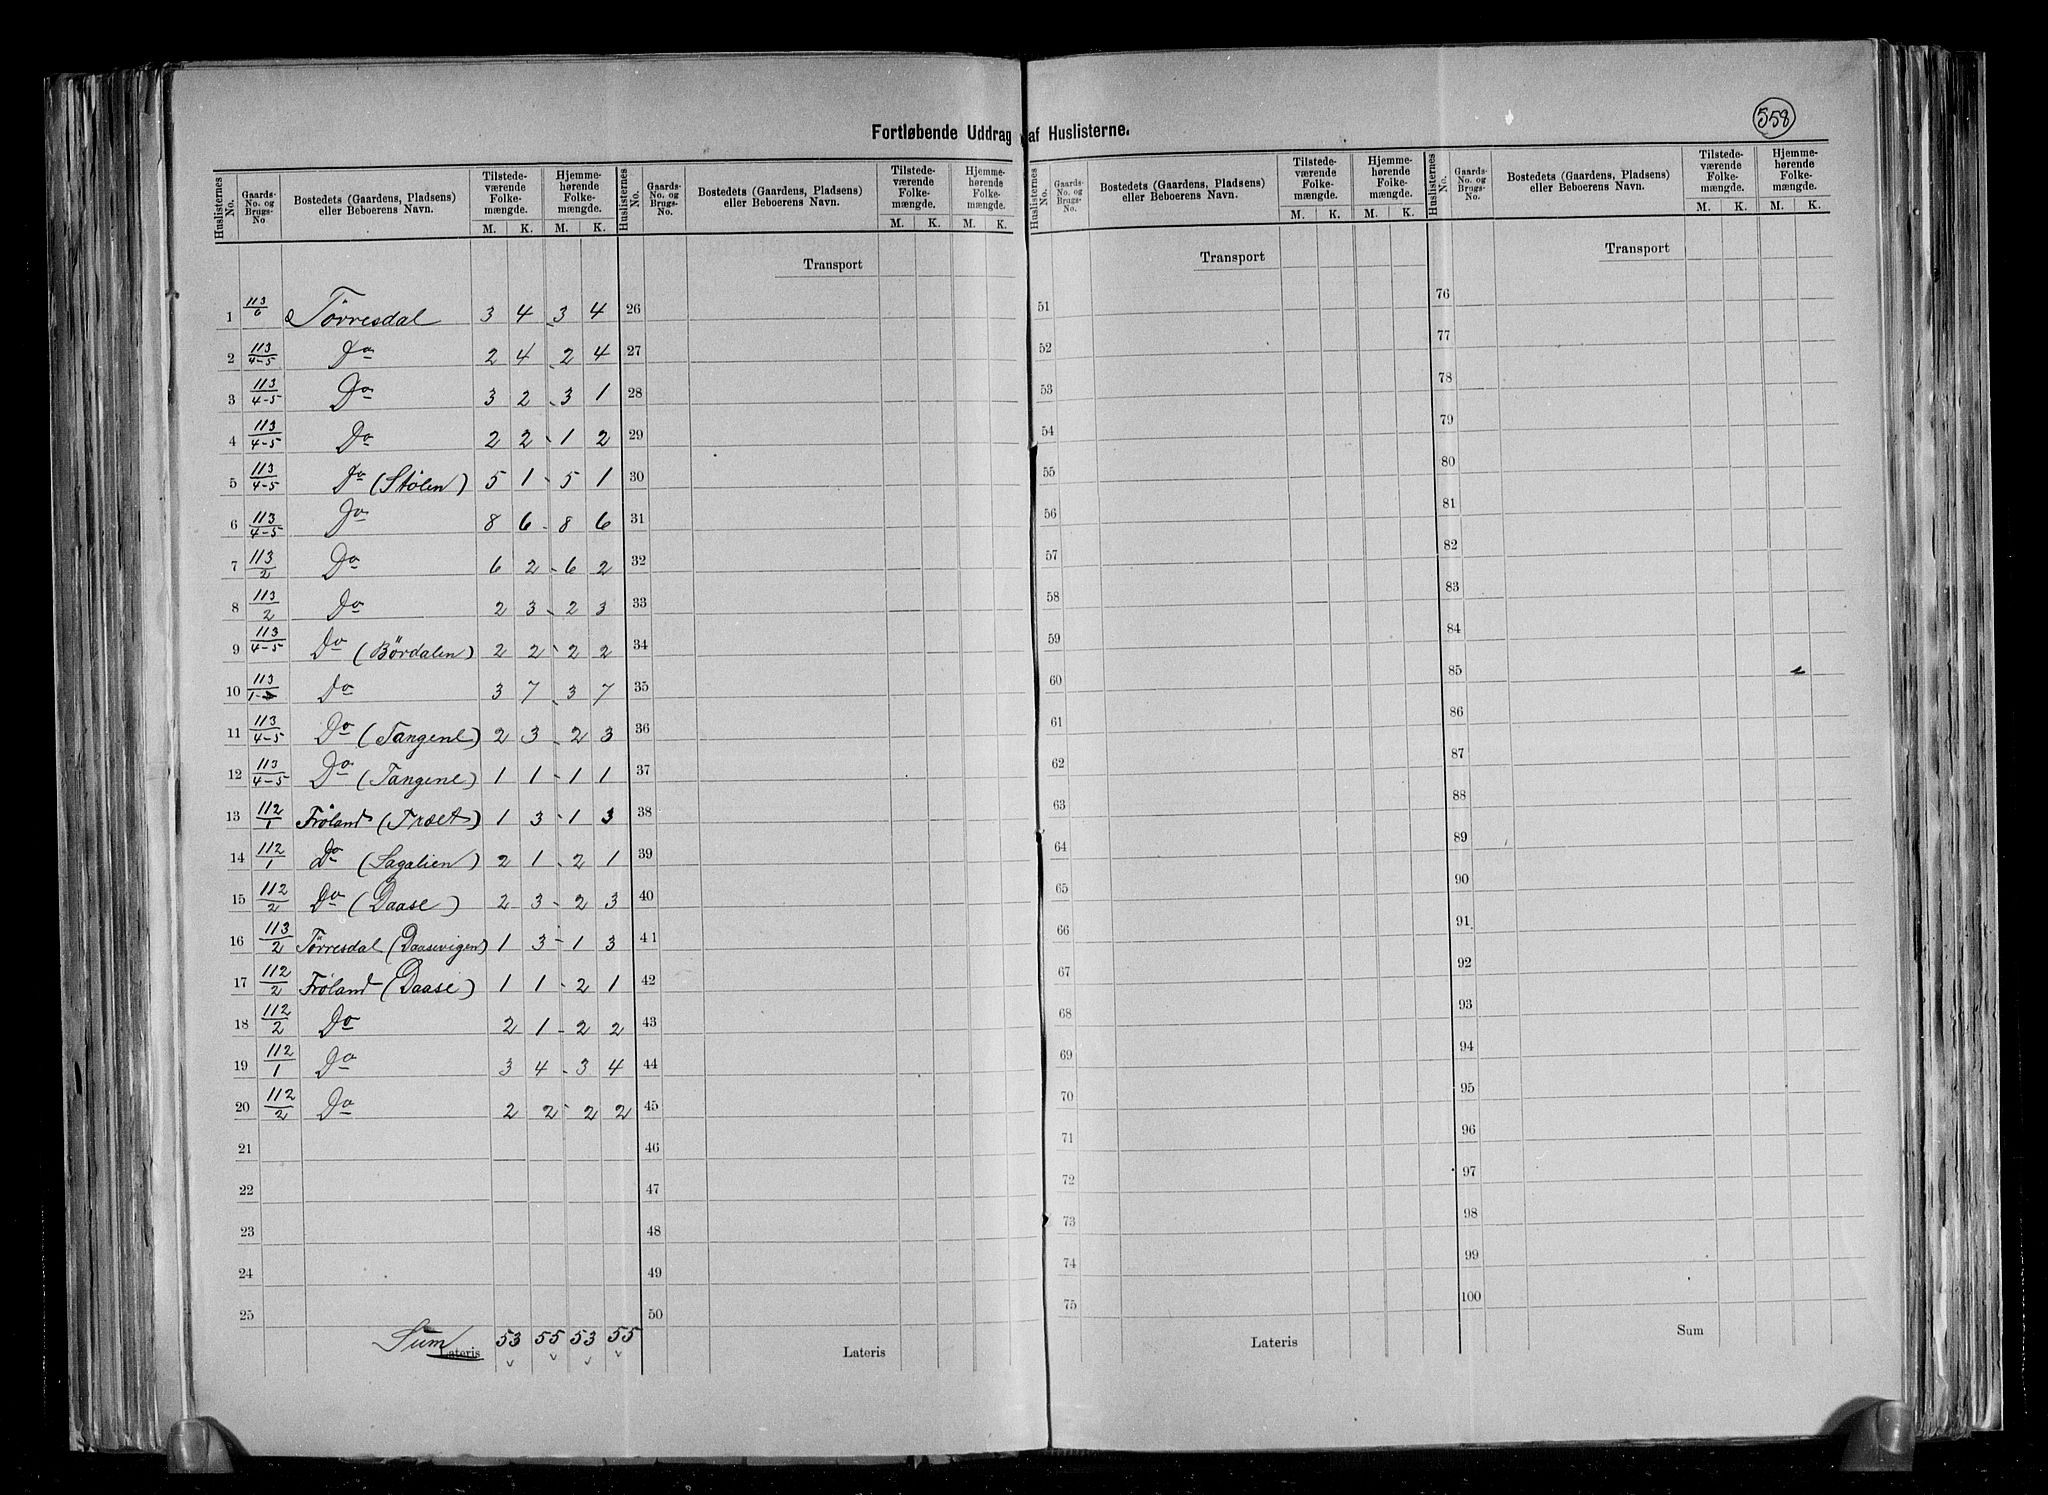 558
Fortløbende Uddrag af Huslisterne.
Huslisternes No. Gaards-No. og Brugs-No Bostedets (Gaardens, Pladsens) eller Beboerens Navn. Tilstede-værende Folke-mængde. Hjemme-hørende Folke-mængde.
M. K. M. K.
Huslisternes No. Gaards-No. og Brugs-No. Bostedets (Gaardens, Pladsens) eller Beboerens Navn. Tilstede-værende Folke-mængde. Hjemme-hørende Folke-mængde.
M. K. M. K.
Huslisternes No. Gaards-No. og Brugs-No. Bostedets (Gaardens, Pladsens) eller Beboerens Navn. Tilstede-værende Folke-mængde. Hjemme-hørende Folke-mængde.
M. K. M. K.
Huslisternes No. Gaards-No. og Brugs-No. Bostedets (Gaardens, Pladsens) eller Beboerens Navn. Tilstede-værende Folke-mængde. Hjemme-hørende Folke-mængde.
M. K. M. K.
Transport Transport Transport
1 113/6 Tørresdal 3 4 - 3 4 26 51 76
2 113/4-5 Do 2 4 - 2 4 27 52 77
3 113/4-5 Do 3 2 - 3 1 28 53 78
4 113/4-5 Do 2 2 - 1 2 29 54 79
5 113/4-5 Do (Stølen) 5 1 - 5 1 30 55 80
6 113/4-5 Do 8 6 - 8 6 31 56 81
7 113/2 Do 6 2 - 6 2 32 57 82
8 113/2 Do 2 3 - 2 3 33 58 83
9 113/4-5 Do (Børdalen) 2 2 - 2 2 34 59 84
10 113/1-3 Do 3 7 - 3 7 35 60 85
11 113/4-5 Do (Tangene) 2 3 - 2 3 36 61 86
12 113/4-5 Do (Tangene) 1 1 - 1 1 37 62 87
13 112/1 Frøland (Træet) 1 3 - 1 3 38 63 88
14 112/1 Do (Sagalien) 2 1 - 2 1 39 64 89
15 112/2 Do (Daase) 2 3 - 2 3 40 65 90
16 113/2 Tørresdal (Daasevigen) 1 3 - 1 3 41 66 91
17 112/2 Frøland (Daase) 1 1 - 2 1 42 67 92
18 112/2 Do 2 1 - 2 2 43 68 93
19 112/1 Do 3 4 - 3 4 44 69 94
20 112/2 Do 2 2 - 2 2 45 70 95
21 46 71 96
22 47 72 97
23 48 73 98
24 49 74 99
25 50 75 100
Sum Lateris 53 55 53 55 Lateris Lateris Sum